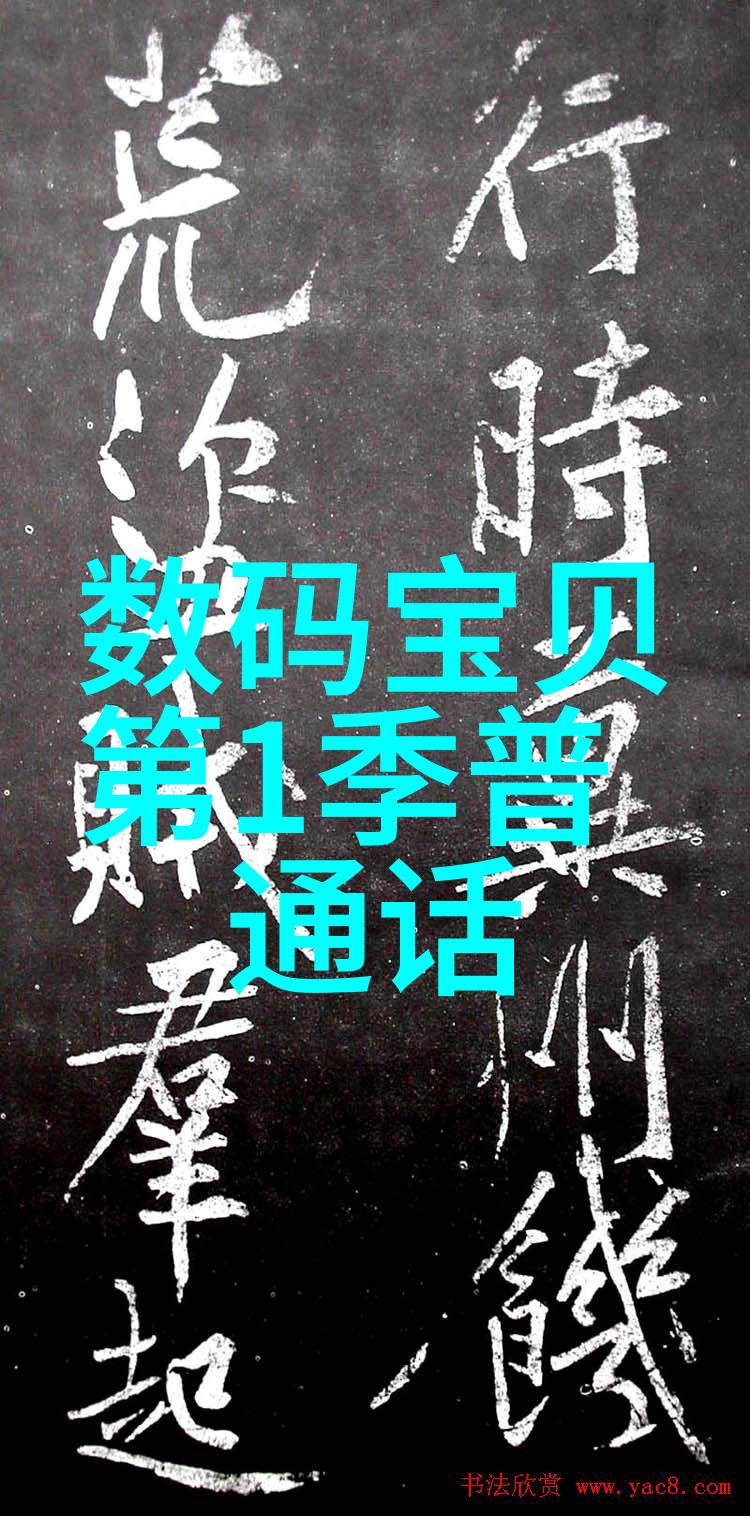 行時冀州饑
荒盜賊羣起
数码宝贝
第1季普
通话
书法欣赏 www.yac8.com